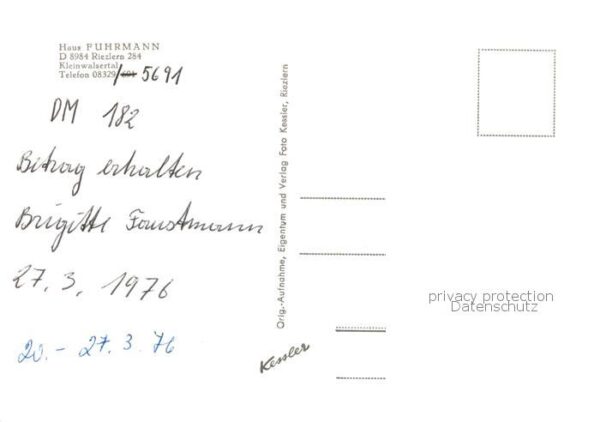 Haus FUHRMANN
D 8984 Riezlern 284
Kleinwalsertal
Telefon 08329/ 5691
DM 182
Betrag erhalten
Brigitte Faustmann
27. 3. 1976
20. - 27. 3. 76
Orig.-Aufnahme, Eigentum und Verlag Foto Kessler, Riezlern
Kessler
privacy protection
Datenschutz